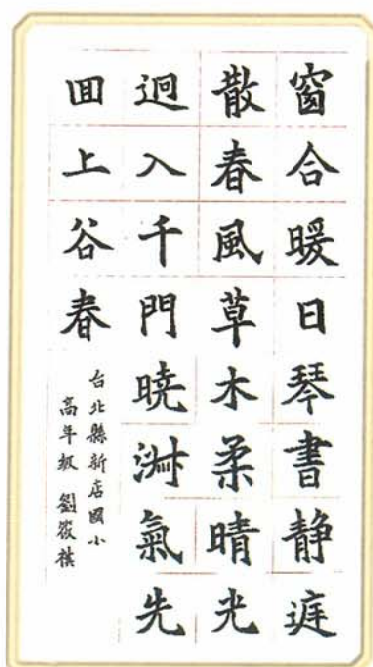 窗合暖日琴書静庭
散春風草木柔晴光
迥入千門曉淑氣先
回上谷春
台北縣新店國小
高年級 劉筱祺